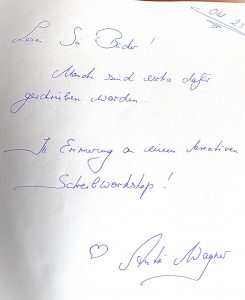 Okt 25
Lesen Sie Bücher!
Manche sind extra dafür
geschrieben worden...
In Erinnerung an einen kreativen
Schreibworkshop!
Wagner